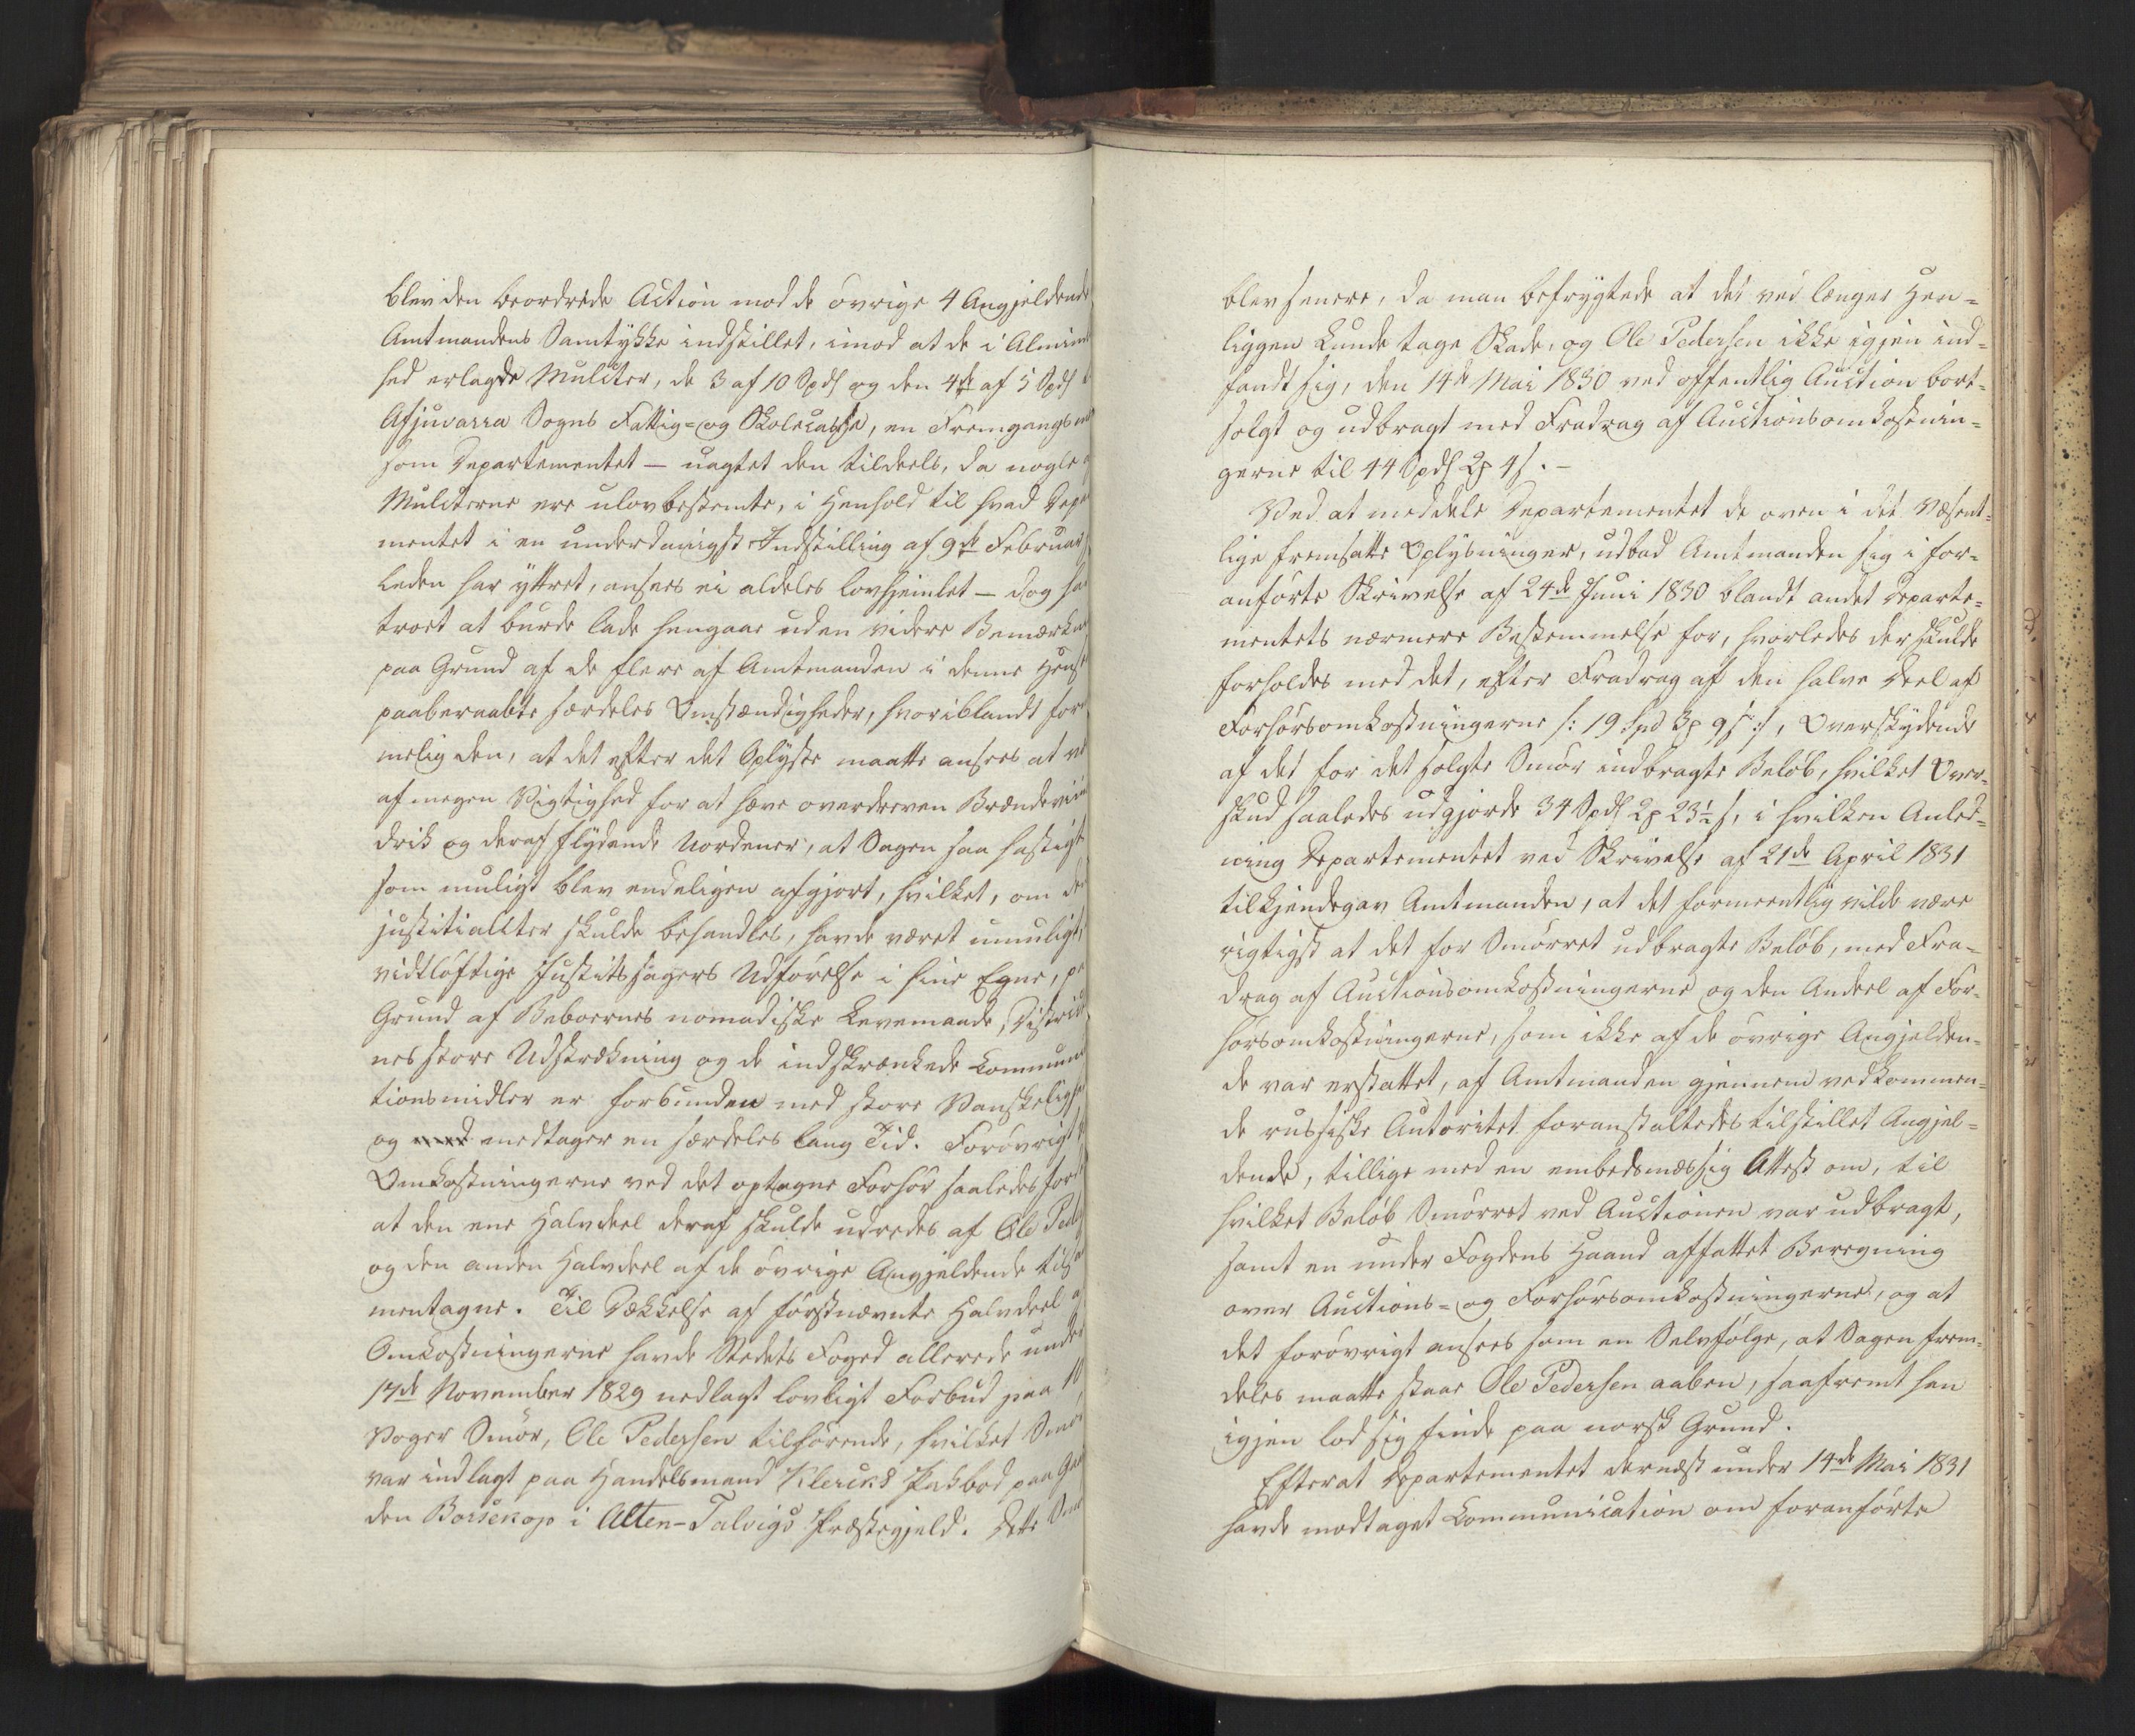 blev den beordrede Action mod de övrige 4 Angjeldende
Amtmandens Samtykke indstillet, imod at de i Almind
hed erlagde Mulcter, de 3 af 10 Spdl og den 4de af 5 Spdl
Afjuvarra Sogns Fattig- og Skolecasse, en Fremgangs
som Departementet — uagtet den tildeels, da nogle
Mulcterne ere ulovbestemte, i Henhold til hvad Depa
mentet i en underdanigst Indstilling af 9de Februar
leden har yttret, ansees ei aldeles lovhjemlet — dog ha
troet at burde lade hengaae uden videre Bemærkn
paa Grund af de flere af Amtmanden i denne Hense
paaberaabte særdeles Omstændigheder, hvoriblandt for
melig den, at det efter det Oplyste maatte ansees at v
af megen Vigtighed for at hæve overdreven Brændeviin
drik og deraf flydende Uordener, at Sagen saa hastigt
som muligt blev endeligen afgjort, hvilket, om de
justitialiter skulde behandles, havde været umuligt,
vidtløftige Justitssagers Udförelse i hine Egne, pa
Grund af Beboernes nomadiske Levemaade, District
nes store Udstrækning og de indskrænkede Communi
tionsmidler er forbunden med store Vanskelighe
og medtager en særdeles lang Tid. Forövrigt
Omkostningerne ved det optagne Forhör saaledes for
at den ene Halvdeel deraf skulde udredes af Ole Peder
og den anden Halvdeel af de övrige Angjeldende tilsa
mentagne. Til Dækkelse af förstnævnte Halvdeel a
Omkostningerne havde Stedets Foged allerede under
17de November 1829 nedlagt lovligt Forbud paa 10
Voger Smör, Ole Pedersen tilhörende, hvilket Smör
var indlagt paa Handelsmand Klercks Pakbod paa Gaar
den Bossekop i Alten-Talvigs Præstegjeld. Dette Smö
blev senere, da man befrygtede at det ved længer Hen-
liggen kunde tage Skade, og Ole Pedersen ikke igjen ind-
fandt sig, den 14de Mai 1830 ved offentlig Auction bort-
solgt og udbragt med Fradrag af Auctionsomkostnin-
gerne til 44 Spdl 2 4 s. —
Ved at meddele Departementet de oven i det Væsent-
lige fremsatte Oplysninger, udbad Amtmanden sig i for-
anförte Skrivelse af 24de Juni 1830 blandt andet Departe-
mentets nærmere Bestemmelse for, hvorledes der skulde
forholdes med det, efter Fradrag af den halve Deel af
Forhörsomkostningerne /: 19 Spd 3 9 s :/, Overskydende
af det for det solgte Smör indbragte Belöb, hvilket Over-
skud saaledes udgjorde 34 Spdl 2 23½ s, i hvilken Anled-
ning Departementet ved Skrivelse af 21de April 1831
tilkjendegav Amtmanden, at det formeentlig vilde være
rigtigst at det for Smörret udbragte Belöb, med Fra-
drag af Auctionsomkostningerne og den Andeel af For-
hörsomkostningerne, som ikke af de övrige Angjelden-
de var erstattet, af Amtmanden gjennem vedkommen-
de russiske Autoritet foranstaltedes tilstillet Angjel-
dende, tillige med en embedsmæssig Attest om, til
hvilket Belöb Smörret ved Auctionen var udbragt,
samt en under Fogdens Haand affattet Beregning
over Auctions- og Forhörsomkostningerne, og at
det forövrigt ansees som en Selvfölge, at Sagen frem-
deles maatte staae Ole Pedersen aaben, saafremt han
igjen lod sig finde paa norsk Grund.
Efterat Departementet dernæst under 14de Mai 1831
havde modtaget Communication om foranförte